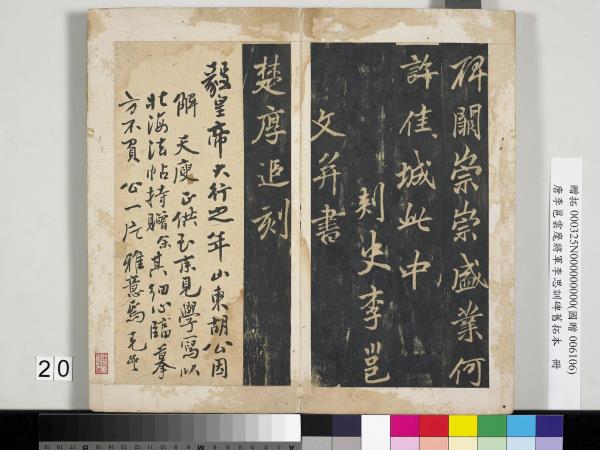 碑闕崇崇盛業何
許佳城此中
刻史李邕
文并書
楚厚追刻
毅皇帝大行之年山東胡公因
解天廋正供至京見學寫以
北海法帖持贈余其細心臨摹
方不負公一片雅意焉
贈拓 000325N000000000(國贈 006106)
唐李邕雲麾將軍李思訓碑舊拓本 冊
20